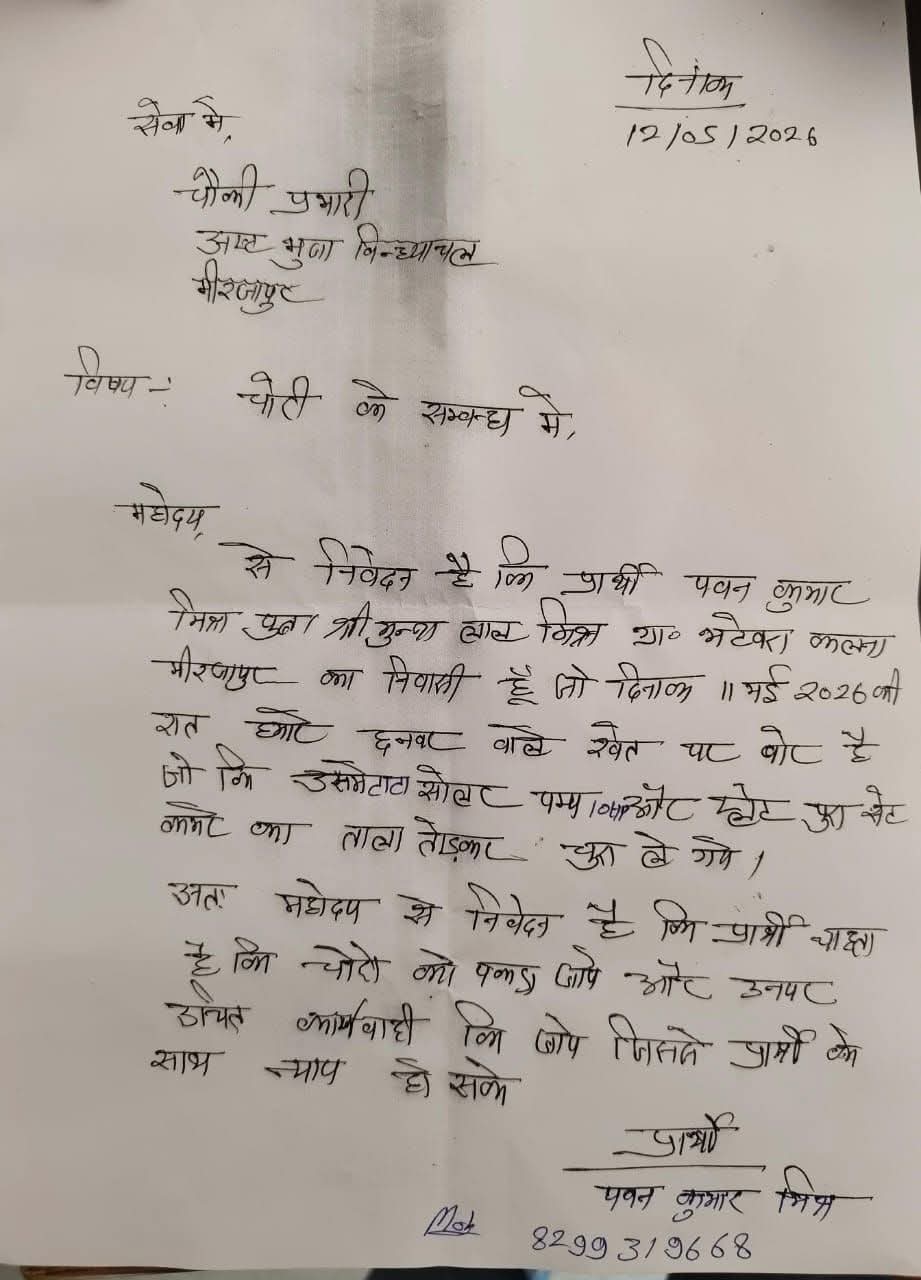 दिनांक
12/05/2026
सेवा मे,
चौकी प्रभारी
अष्ट भुजा विन्ध्याचल
मीरजापुर
विषय -: चोरी के सम्बन्ध मे,
महोदय,
से निवेदन है कि प्रार्थी पवन कुमार
मिश्रा पुत्र श्री मुन्ना लाल मिश्रा ग्रा० भटेवरा कलना
मीरजापुर का निवासी हूँ जो दिनाक 11 मई 2026 की
रात हमारे छनवर वाले खेत पर बोर है
जो कि उसमे टाटा सोलर पम्प 10HP और प्लेट पुरा सेट
कमरे का ताला तोड़कर चुरा ले गये।
अतः महोदय से निवेदन है कि प्रार्थी चाहता
है कि चोरो को पकड़ा जाये और उनपर
उचित कार्यवाही कि जाये जिससे प्रार्थी के
साथ न्याय हो सके
प्रार्थी
पवन कुमार मिश्रा
Mob 8299319668